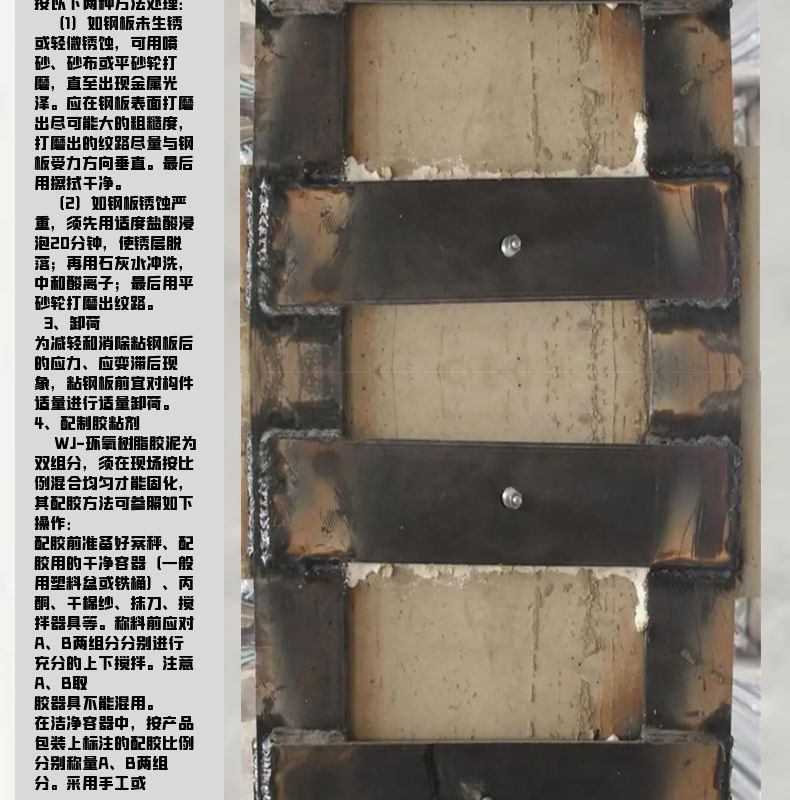 按以下两种方法处理:
(1) 如钢板未生锈
或轻微锈蚀，可用喷
砂、砂布或平砂轮打
磨，直至出现金属光
泽。应在钢板表面打磨
出尽可能大的粗糙度，
打磨出的纹路尽量与钢
板受力方向垂直。最后
用擦拭干净。
(2) 如钢板锈蚀严
重，须先用适度盐酸浸
泡20分钟，使锈层脱
落；再用石灰水冲洗，
中和酸离子；最后用平
砂轮打磨出纹路。
3、卸荷
为减轻和消除粘钢板后
的应力、应变滞后现
象，粘钢板前宜对构件
适量进行适量卸荷。
4、配制胶粘剂
WJ-环氧树脂胶泥为
双组分，须在现场按比
例混合均匀才能固化，
其配胶方法可参照如下
操作:
配胶前准备好案秤、配
胶用的干净容器（一般
用塑料盆或铁桶）、丙
酮、干棉纱、抹刀、搅
拌器具等。称料前应对
A、B两组分分别进行
充分的上下搅拌。注意
A、B取
胶器具不能混用。
在洁净容器中，按产品
包装上标注的配胶比例
分别称量A、B两组
分。采用手工或